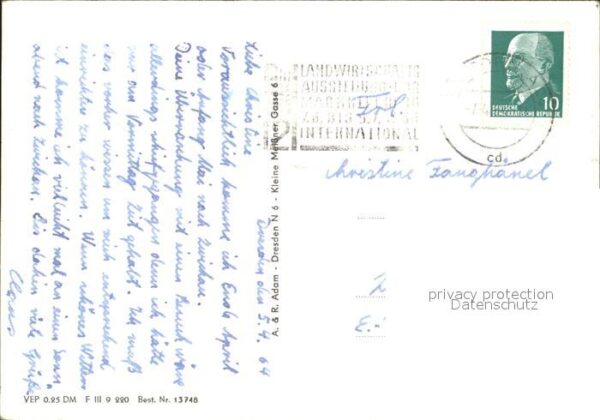 Dresden den 5.4.64
Liebe Christine
Voraussichtlich komme ich Ende April
oder Anfang Mai nach Zwickau.
Deine Überraschung mit einem Besuch wäre
allerdings schiefgegangen denn ich hätte
nur am Vormittag Zeit gehabt. Ich muß
das vorher wissen um mich entsprechend
einrichten zu können. Wenn schönes Wetter
ist komme ich vielleicht mal an einem Sonn-
abend nach Zwickau. Bis dahin viele Grüße
Claus
A. & R. Adam - Dresden N 6 - Kleine Meißner Gasse 6
VEP 0.25 DM F III 9 220 Best. Nr. 13748
LANDWIRTSCHAFTS
AUSSTELLUNG
MARKKLEEBERG
INTERNATIONAL
cd
DEUTSCHE
DEMOKRATISCHE REPUBLIK
10
Christine Fanghänel
privacy protection
Datenschutz